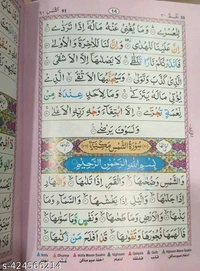 ١٤
لِلْعُسْرٰى وَمَا يُغْنِيْ عَنْهُ مَالُهٗٓ اِذَا تَرَدّٰى
اِنَّ عَلَيْنَا لَلْهُدٰى وَاِنَّ لَنَا لَلْاٰخِرَةَ وَالْاُوْلٰى
فَاَنْذَرْتُكُمْ نَارًا تَلَظّٰى لَا يَصْلٰىهَآ اِلَّا الْاَشْقَى
الَّذِيْ كَذَّبَ وَتَوَلّٰى وَسَيُجَنَّبُهَا الْاَتْقَى الَّذِيْ
يُؤْتِيْ مَالَهٗ يَتَزَكّٰى وَمَا لِاَحَدٍ عِنْدَهٗ مِنْ
نِّعْمَةٍ تُجْزٰٓى اِلَّا ابْتِغَآءَ وَجْهِ رَبِّهِ الْاَعْلٰى
وَلَسَوْفَ يَرْضٰى
سُوْرَةُ الشَّمْسِ مَكِّيَّةٌ
بِسْمِ اللّٰهِ الرَّحْمٰنِ الرَّحِيْمِ
وَالشَّمْسِ وَضُحٰىهَا وَالْقَمَرِ اِذَا تَلٰىهَا وَالنَّهَارِ اِذَا
جَلّٰىهَا وَالَّيْلِ اِذَا يَغْشٰىهَا وَالسَّمَآءِ وَمَا
بَنٰىهَا وَالْاَرْضِ وَمَا طَحٰىهَا وَنَفْسٍ وَّمَا سَوّٰىهَا
فَاَلْهَمَهَا فُجُوْرَهَا وَتَقْوٰىهَا قَدْ اَفْلَحَ مَنْ زَكّٰىهَا